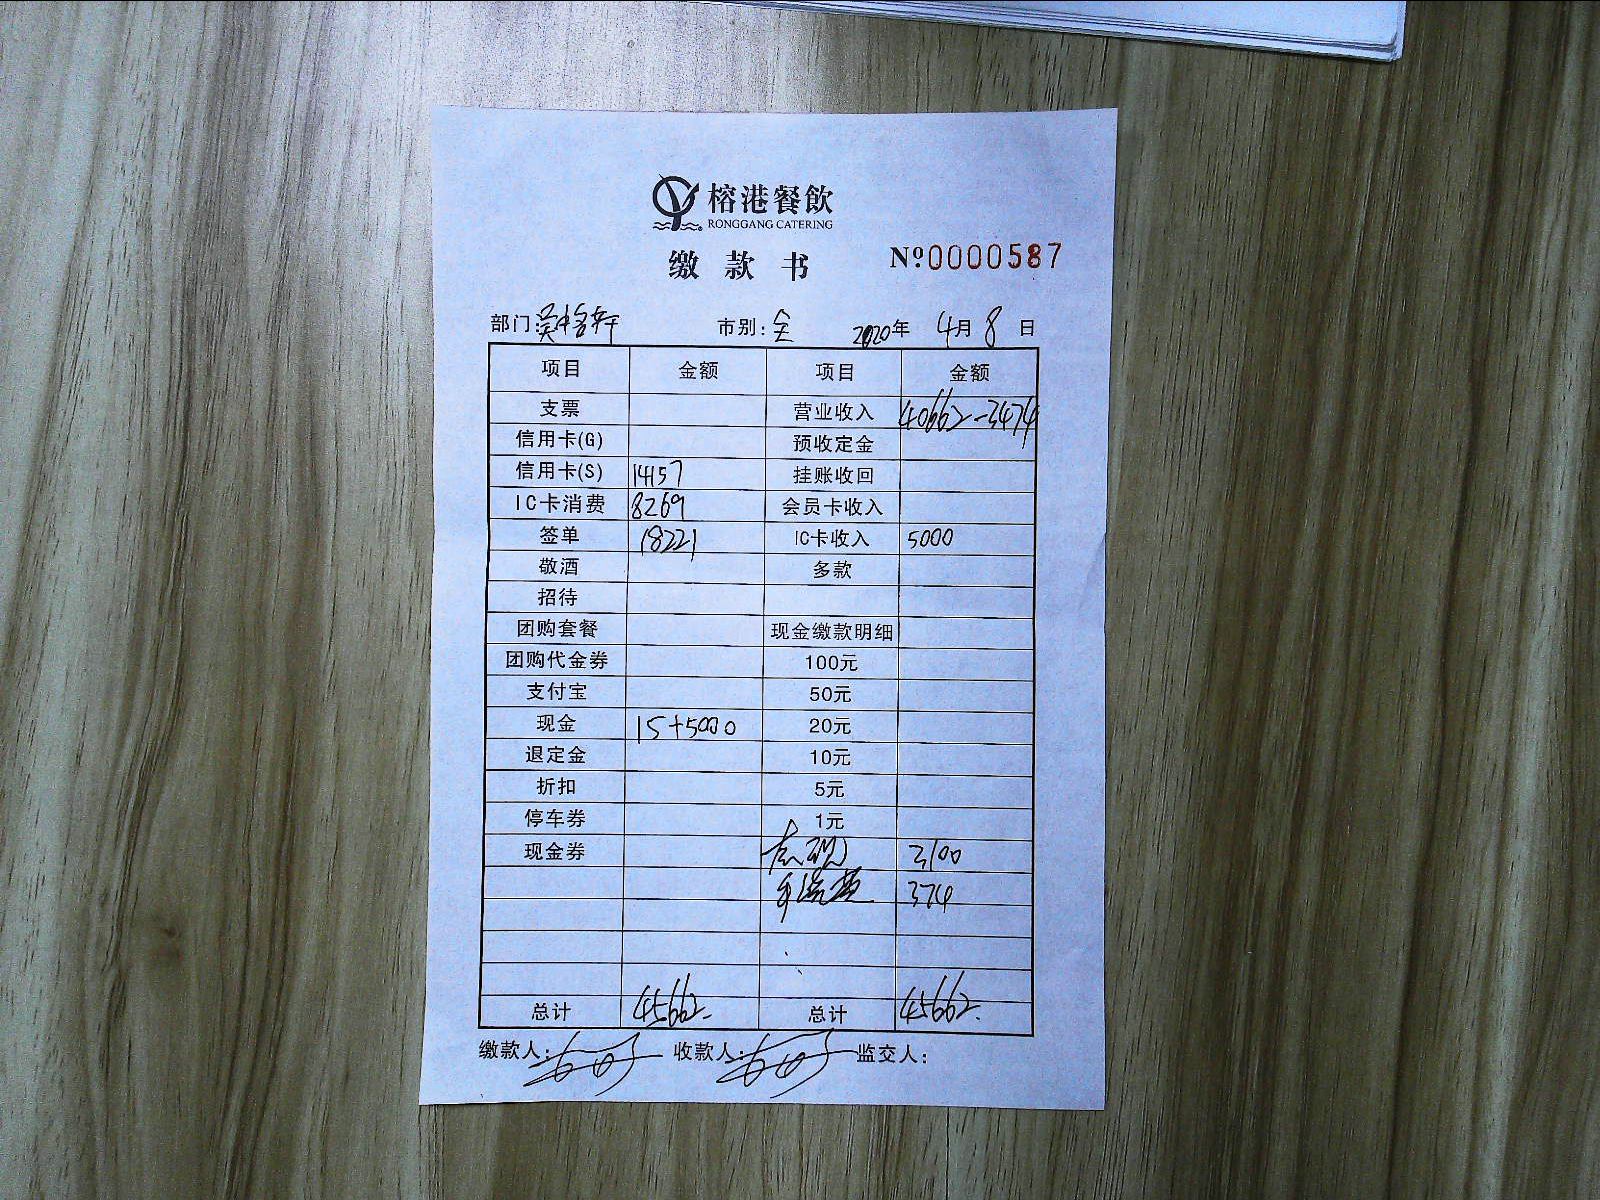 榕港餐飲
RONGGANG CATERING
缴款书 Nº0000587
部门: 市别:全 2020年 4月 8日
项目 金额 项目 金额
支票 营业收入 40662-3474
信用卡(G) 预收定金
信用卡(S) 14157 挂账收回
IC卡消费 8269 会员卡收入
签单 18221 IC卡收入 5000
敬酒 多款
招待
团购套餐 现金缴款明细
团购代金券 100元
支付宝 50元
现金 15+5000 20元
退定金 10元
折扣 5元
停车券 1元
现金券 3100
374
总计 45662. 总计 45662.
缴款人: 收款人: 监交人: